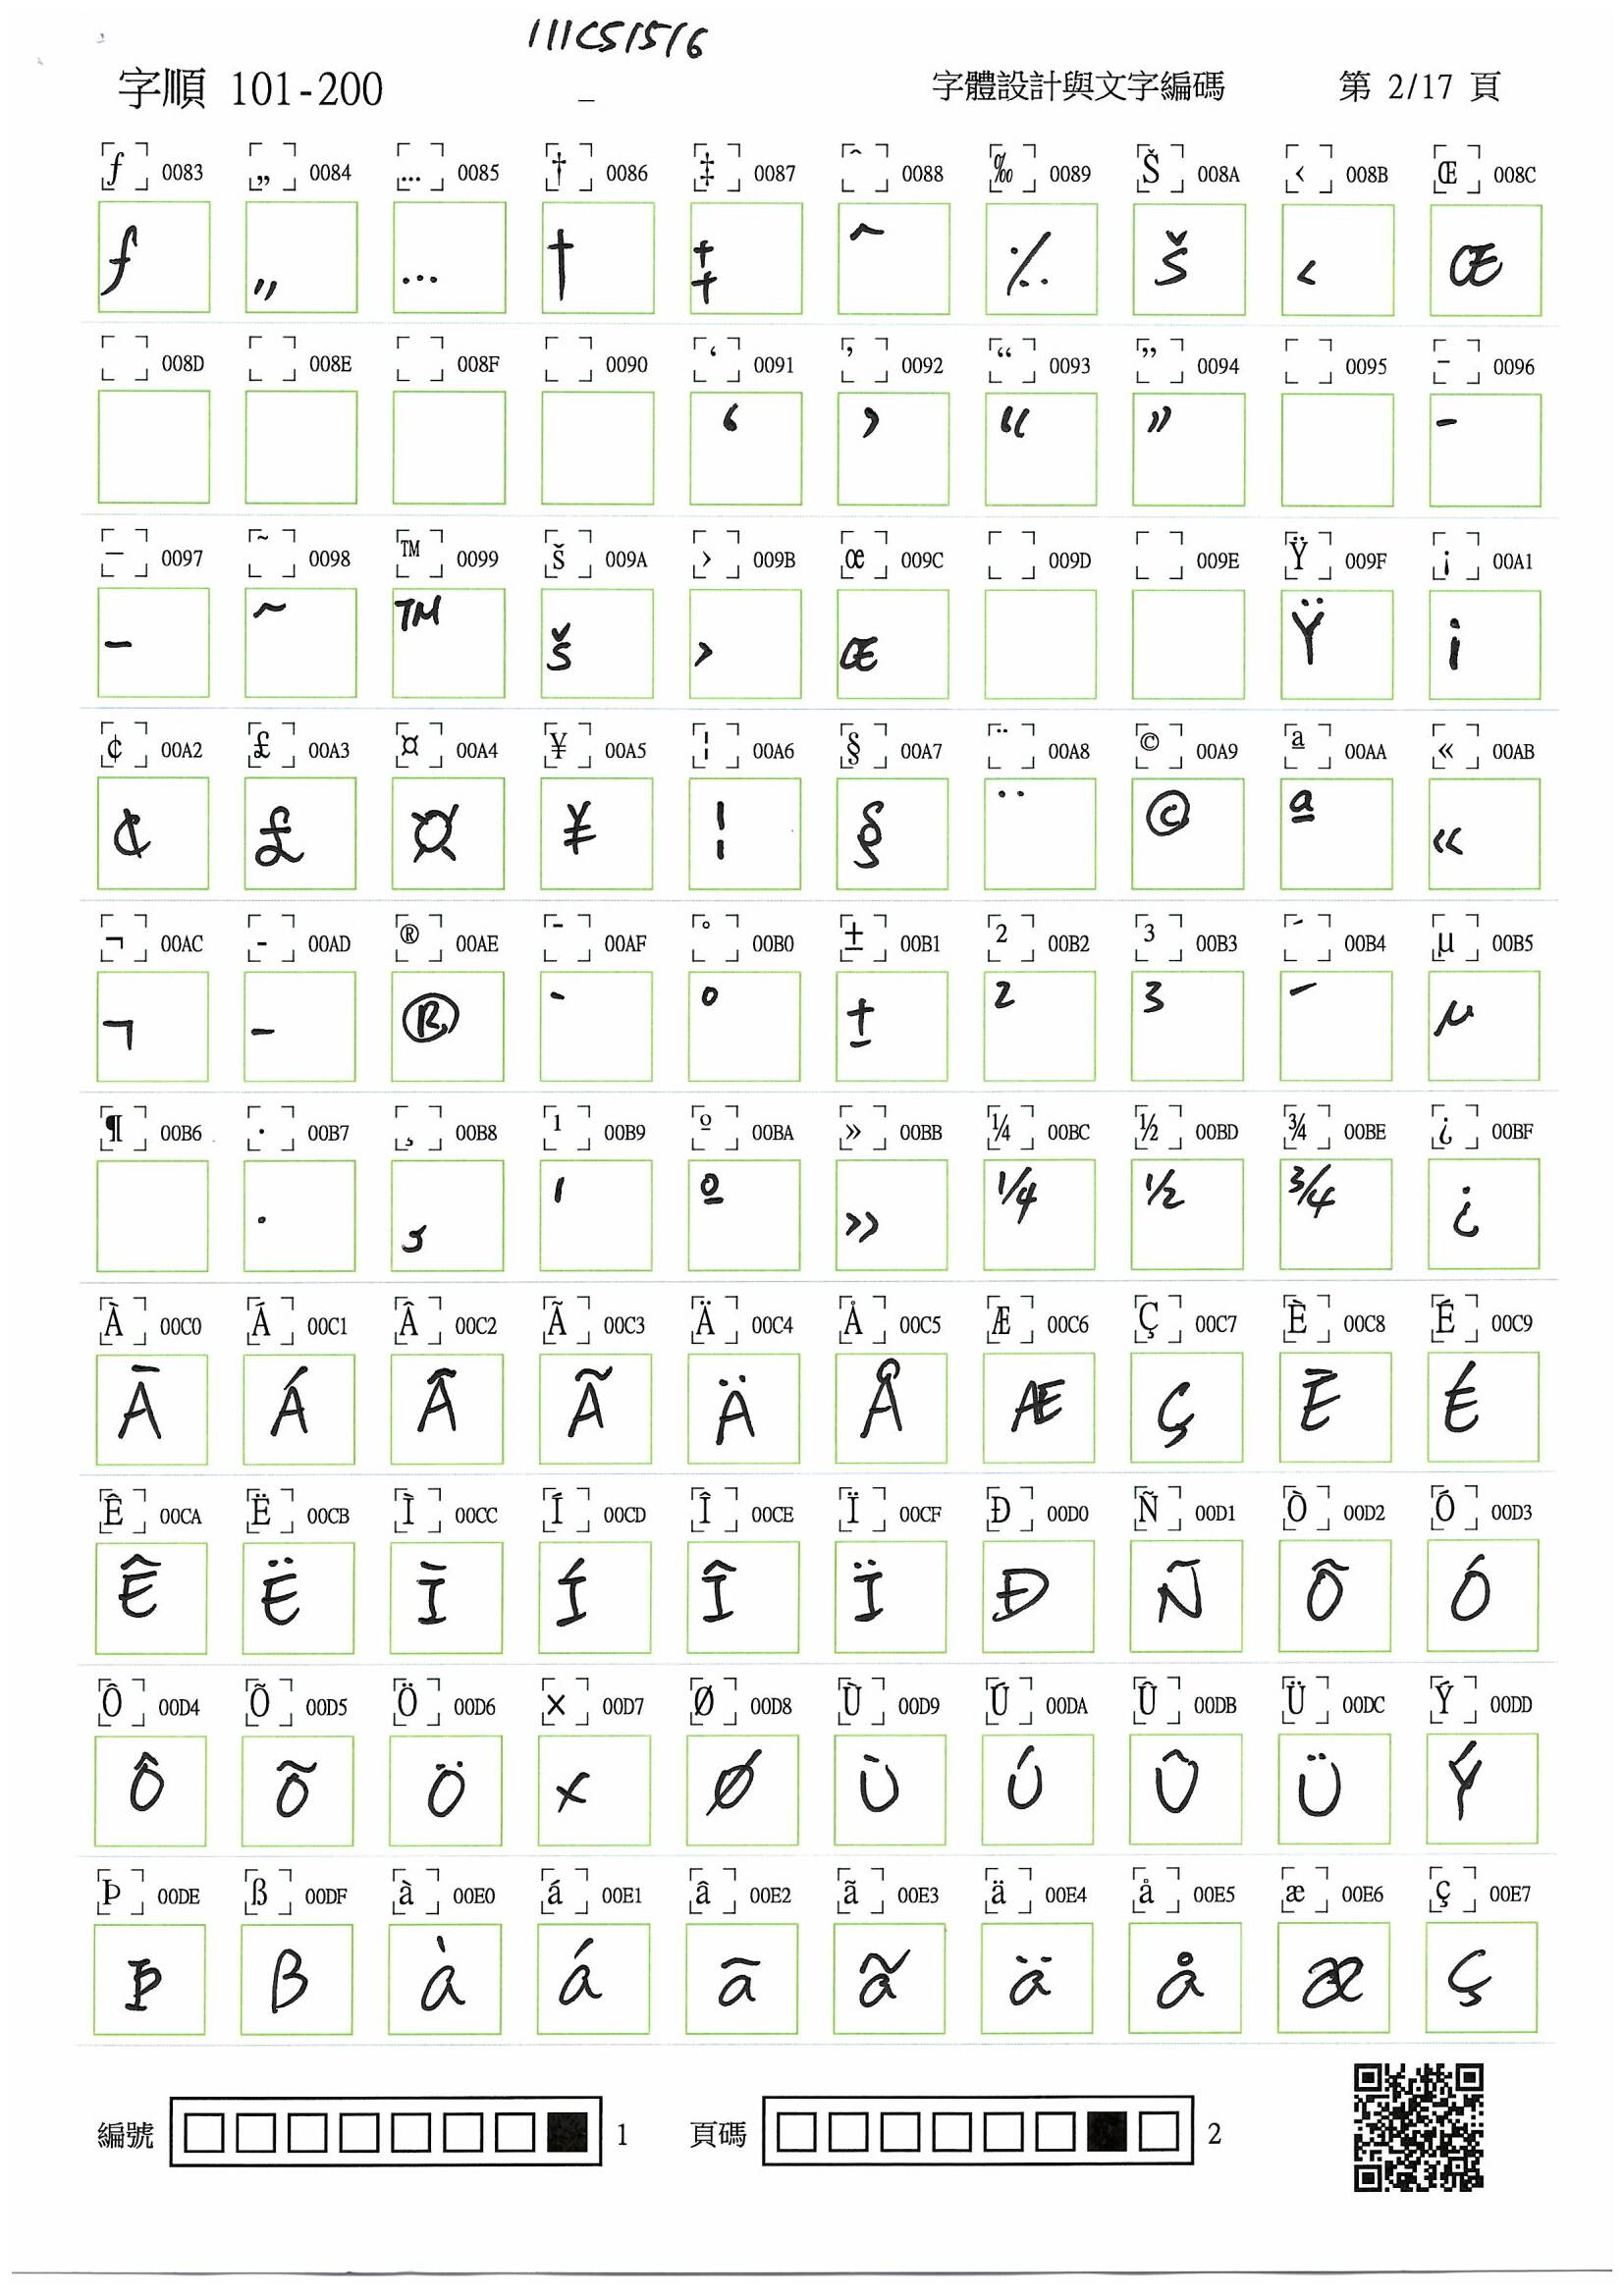 111CS1516
字順 101-200 _ 字體設計與文字編碼 第 2/17 頁
ƒ 0083 „ 0084 … 0085 † 0086 ‡ 0087 ˆ 0088 ‰ 0089 Š 008A ‹ 008B Œ 008C
ƒ „ … † ‡ ˆ ٪ Š ‹ Œ
008D 008E 008F 0090 ‘ 0091 ’ 0092 “ 0093 ” 0094 0095 – 0096
‘ ’ “ ” –
— 0097 ˜ 0098 ™ 0099 š 009A › 009B œ 009C 009D 009E Ÿ 009F ¡ 00A1
— ˜ ™ š › œ Ÿ ¡
¢ 00A2 £ 00A3 ¤ 00A4 ¥ 00A5 ¦ 00A6 § 00A7 ¨ 00A8 © 00A9 ª 00AA « 00AB
¢ £ ¤ ¥ ¦ § ¨ © ª «
¬ 00AC - 00AD ® 00AE ¯ 00AF ° 00B0 ± 00B1 ² 00B2 ³ 00B3 ´ 00B4 µ 00B5
¬ - ® ¯ ° ± ² ³ ´ µ
¶ 00B6 · 00B7 ¸ 00B8 ¹ 00B9 º 00BA » 00BB ¼ 00BC ½ 00BD ¾ 00BE ¿ 00BF
· ¸ ¹ º » ¼ ½ ¾ ¿
À 00C0 Á 00C1 Â 00C2 Ã 00C3 Ä 00C4 Å 00C5 Æ 00C6 Ç 00C7 È 00C8 É 00C9
Ā Á Â Ã Ä Å Æ Ç Ē É
Ê 00CA Ë 00CB Ì 00CC Í 00CD Î 00CE Ï 00CF Ð 00D0 Ñ 00D1 Ò 00D2 Ó 00D3
Ê Ë Ì Í Î Ï Ð Ñ Õ Ó
Ô 00D4 Õ 00D5 Ö 00D6 × 00D7 Ø 00D8 Ù 00D9 Ú 00DA Û 00DB Ü 00DC Ý 00DD
Ô Õ Ö × Ø Ù Ú Û Ü Ý
Þ 00DE ß 00DF à 00E0 á 00E1 â 00E2 ã 00E3 ä 00E4 å 00E5 æ 00E6 ç 00E7
Þ ß à á ā ã ä å æ ç
編號 1 頁碼 2